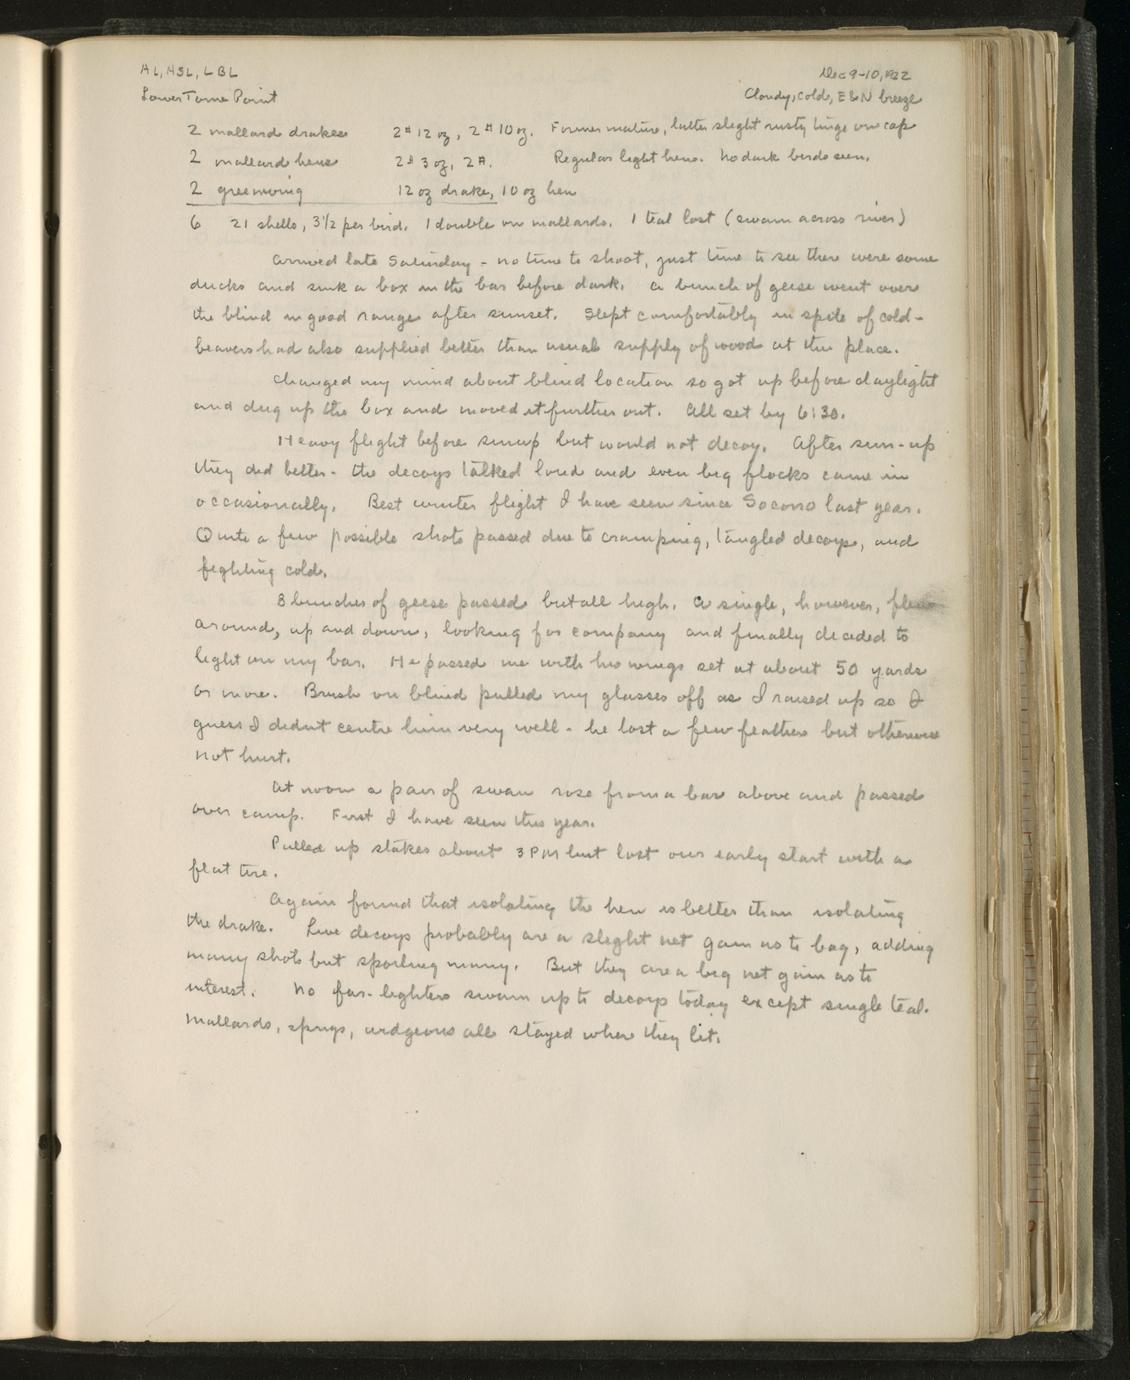 AL, HSL, LBL
Dec 9-10, 1922
Lower Tome Point
Cloudy, cold, E & N breeze
2 mallard drakes 2# 12 oz, 2# 10 oz. Former mature, latter slight rusty tinge on cap
2 mallard hens 2# 3 oz, 2#. Regular light hens. No dark birds seen.
2 greenwing 12 oz drake, 10 oz hen
6 21 shells, 3 1/2 per bird. 1 double on mallards. 1 teal lost (swam across river)
Arrived late Saturday - no time to shoot, just time to see there were some
ducks and sink a box in the bar before dark. A bunch of geese went over
the blind in good range after sunset. Slept comfortably in spite of cold -
beavers had also supplied better than usual supply of wood at this place.
Changed my mind about blind location so got up before daylight
and dug up the box and moved it further out. All set by 6:30.
Heavy flight before sunup but would not decoy. After sun-up
they did better - the decoys talked loud and even big flocks came in
occasionally. Best winter flight I have seen since Socorro last year.
Quite a few possible shots passed due to cramping, tangled decoys, and
fighting cold.
3 bunches of geese passed but all high. A single, however, flew
around, up and down, looking for company and finally decided to
light on my bar. He passed me with his wings set at about 50 yards
or more. Brush on blind pulled my glasses off as I raised up so I
guess I didnt centre him very well - he lost a few feathers but otherwise
not hurt.
At noon a pair of swan rose from a bar above and passed
over camp. First I have seen this year.
Pulled up stakes about 3 PM but lost our early start with a
flat tire.
Again found that isolating the hen is better than isolating
the drake. Live decoys probably are a slight net gain as to bag, adding
many shots but spoiling many. But they are a big net gain as to
interest. No far-lighters swam up to decoys today except single teal.
Mallards, sprigs, widgeons all stayed where they lit.